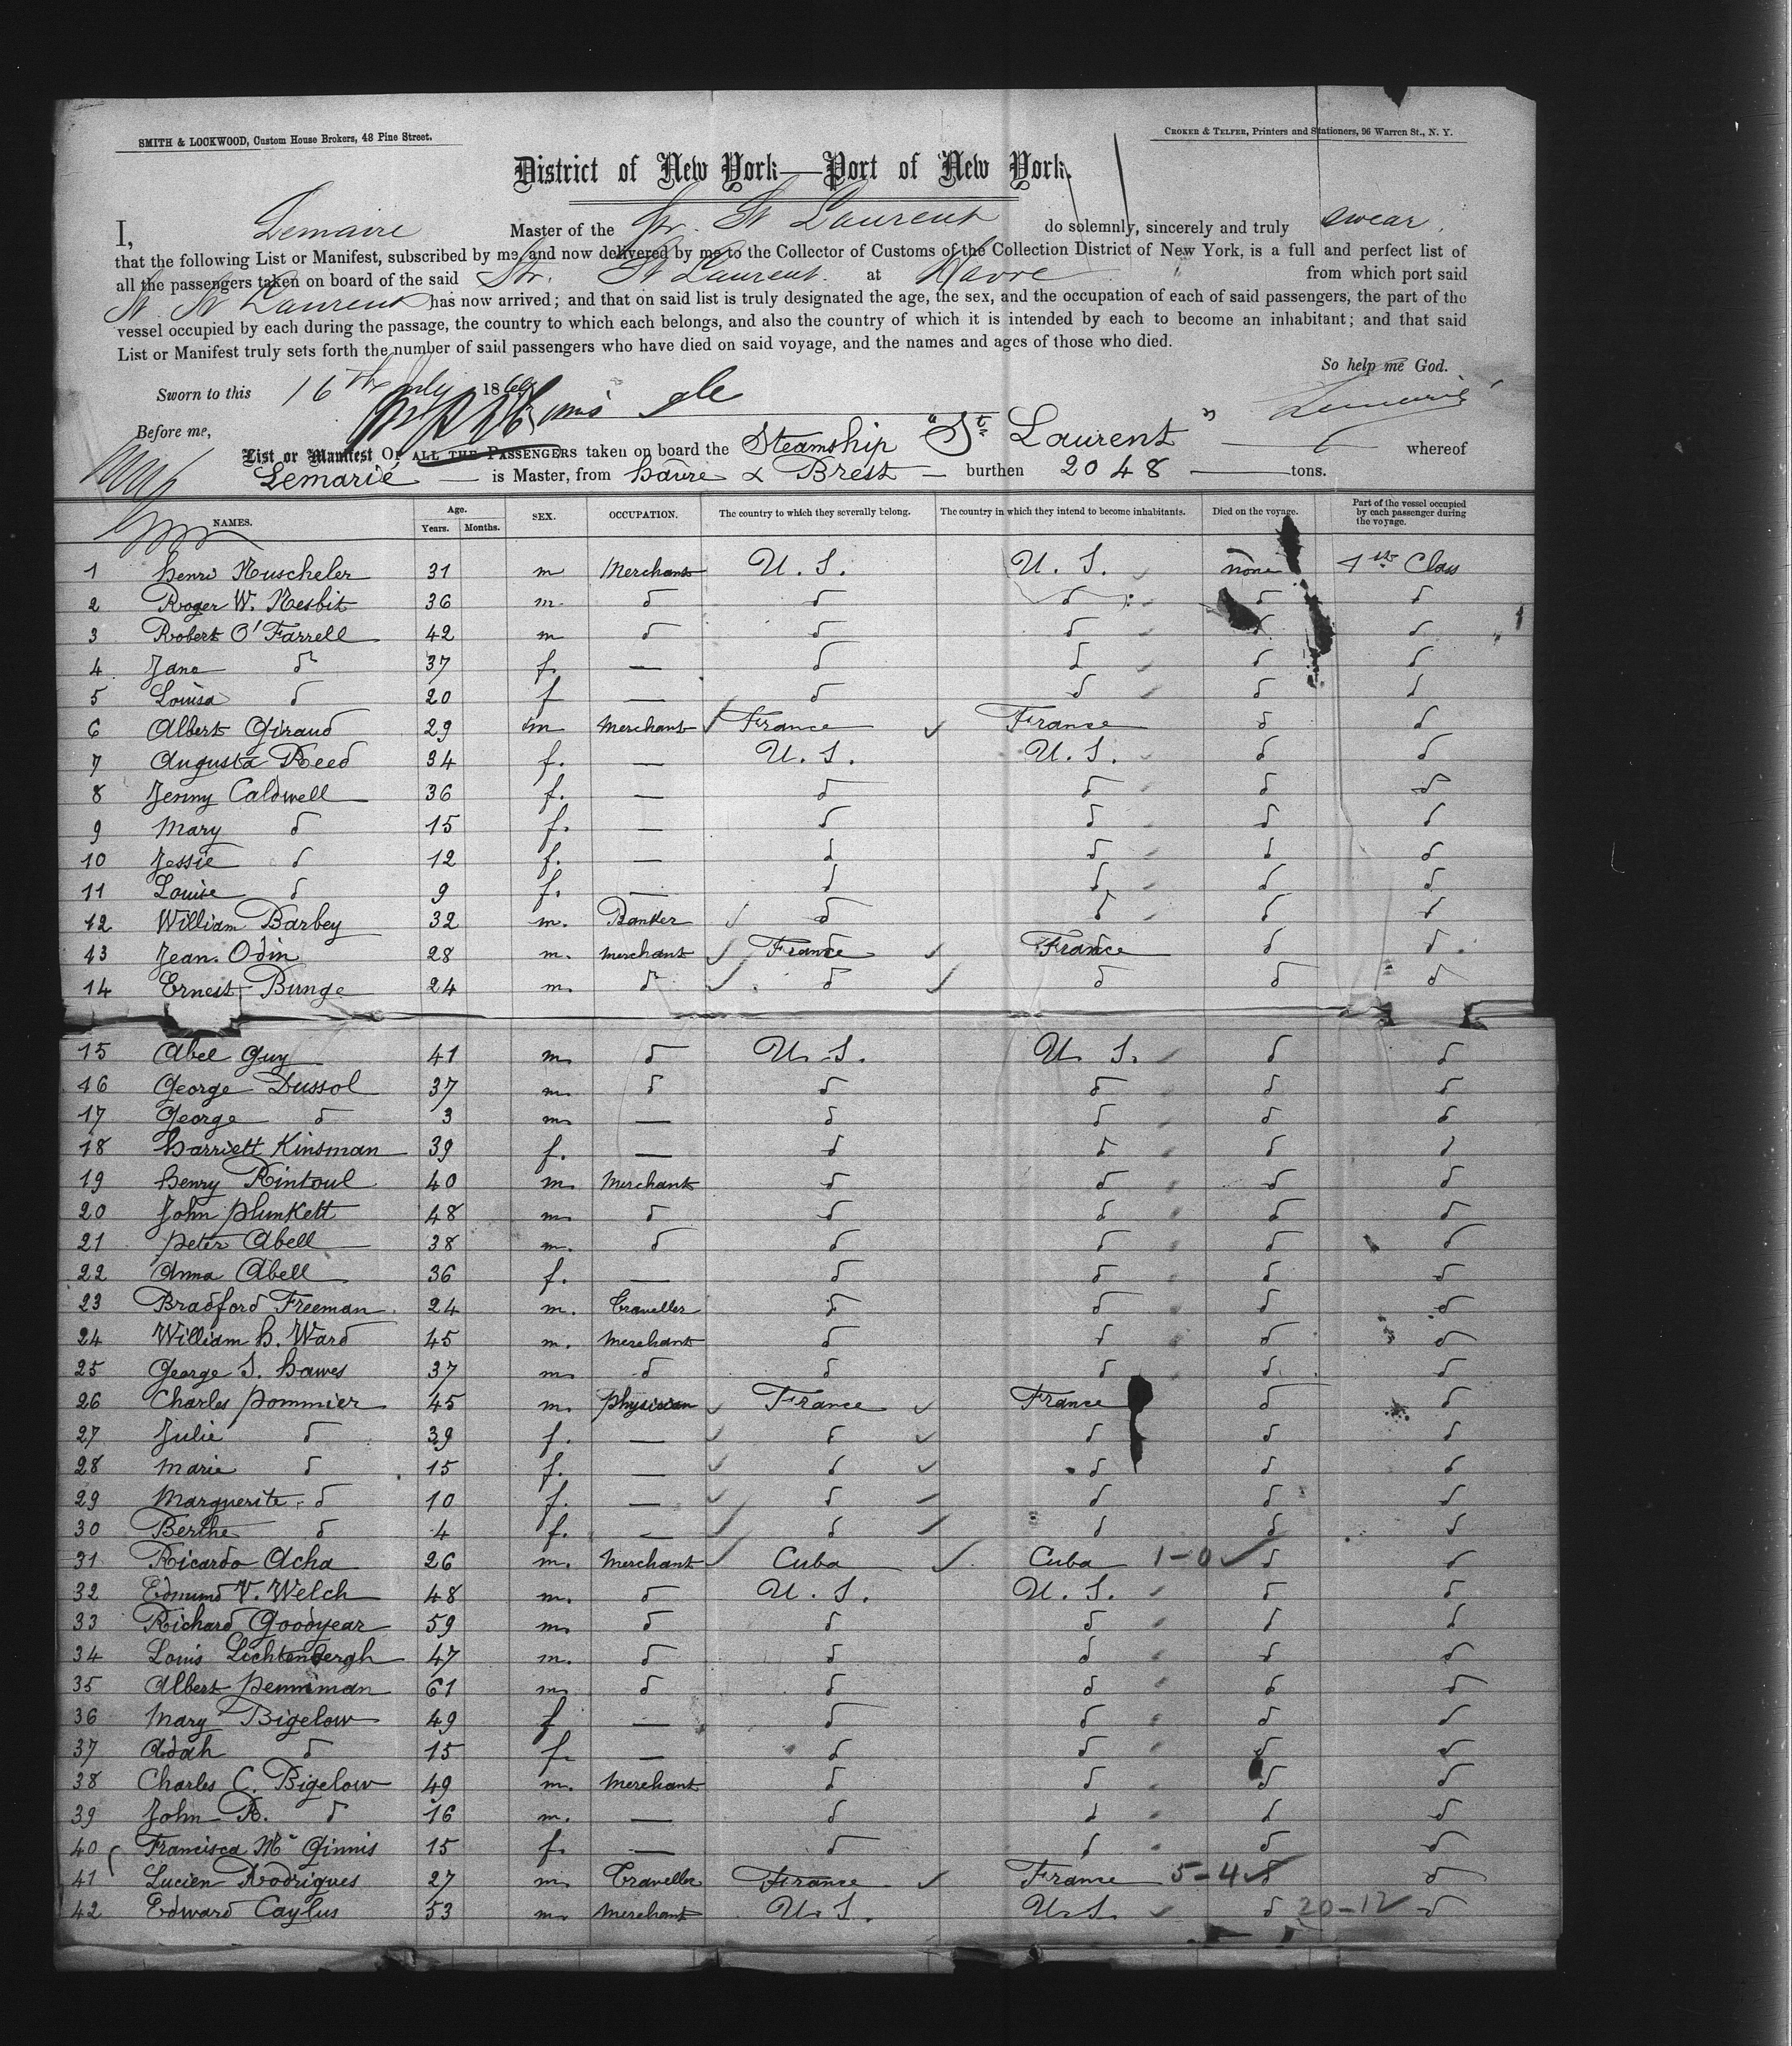 SMITH & LOCKWOOD, Custom House Brokers, 48 Pine Street.
CROKER & TELFER, Printers and Stationers, 96 Warren St., N. Y.
District of New York—Port of New York.
I, Lemaire Master of the Str. St Laurent do solemnly, sincerely and truly swear,
that the following List or Manifest, subscribed by me, and now delivered by me to the Collector of Customs of the Collection District of New York, is a full and perfect list of
all the passengers taken on board of the said Str. St Laurent at Havre from which port said
St. St Laurent has now arrived; and that on said list is truly designated the age, the sex, and the occupation of each of said passengers, the part of the
vessel occupied by each during the passage, the country to which each belongs, and also the country of which it is intended by each to become an inhabitant; and that said
List or Manifest truly sets forth the number of said passengers who have died on said voyage, and the names and ages of those who died.
So help me God.
Sworn to this 16th July 1869
Lemarié
Before me,
List or Manifest OF ALL THE PASSENGERS taken on board the Steamship "St Laurent" whereof
Lemarié is Master, from havre & Brest burthen 2048 tons.
NAMES. Age. Years. Months. SEX. OCCUPATION. The country to which they severally belong. The country in which they intend to become inhabitants. Died on the voyage. Part of the vessel occupied by each passenger during the voyage.
1 henri Nuscheler 31 m Merchant U. S. U. S. none 1st Class
2 Roger W. Nesbit 36 m. d d d d d
3 Robert O'Farrell 42 m d d d d d
4 Jane d 37 f. — d d d d
5 Louisa d 20 f — d d d d
6 Albert Giraud 29 m Merchant France France d d
7 Augusta Reed 34 f. — U. S. U. S. d d
8 Jenny Caldwell 36 f. — d d d d
9 Mary d 15 f. — d d d d
10 Jessie d 12 f. — d d d d
11 Louise d 9 f. — d d d d
12 William Barbey 32 m. Banker d d d d
13 Jean Odin 28 m. merchant France France d d
14 Ernest Bunge 24 m. d d d d d
15 Abel Guy 41 m. d U. S. U. S. d d
16 George Dussol 37 m. d d d d d
17 George d 3 m. — d d d d
18 harriett Kinsman 39 f. — d d d d
19 henry Rintoul 40 m. Merchant d d d d
20 John plunkett 48 m. d d d d d
21 peter Abell 38 m. d d d d d
22 Anna Abell 36 f. — d d d d
23 Bradford Freeman 24 m. Traveller d d d d
24 William h. Ward 45 m. Merchant d d d d
25 George S. hawes 37 m. d d d d d
26 Charles pommier 45 m. physician France France d d
27 Julie d 39 f. — d d d d
28 Marie d 15 f. — d d d d
29 Marguerite d 10 f. — d d d d
30 Berthe d 4 f. — d d d d
31 Ricardo Acha 26 m. Merchant Cuba Cuba 1-0 d d
32 Edmund V. Welch 48 m. d U. S. U. S. d d
33 Richard Goodyear 59 m. d d d d d
34 Louis Lichtenbergh 47 m. d d d d d
35 Albert penniman 61 m. d d d d d
36 Mary Bigelow 49 f — d d d d
37 Adah d 15 f. — d d d d
38 Charles C. Bigelow 49 m. Merchant d d d d
39 John R. d 16 m. — d d d d
40 Francisca Mc Ginnis 15 f. — d d d d
41 Lucien Rodrigues 27 m. Traveller France France 5-4 d d
42 Edward Caylus 53 m. merchant U. S. U. S. d 20-12 d